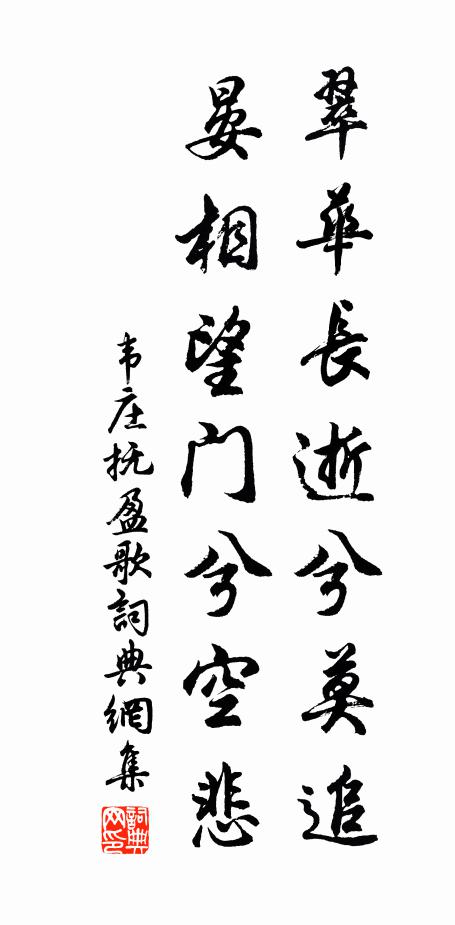 翠華長逝兮莫追
晏相望門兮空悲
韦庄抚盈歌詞典網集
詞典网印